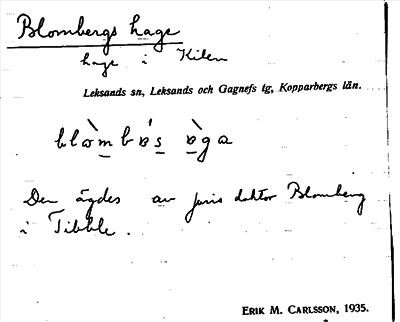 Blombergs hage
hage i Kilen
Leksands sn, Leksands och Gagnefs tg, Kopparbergs län.
Den ägdes av juris doktor Blomberg
i Tibble.
ERIK M. CARLSSON, 1935.